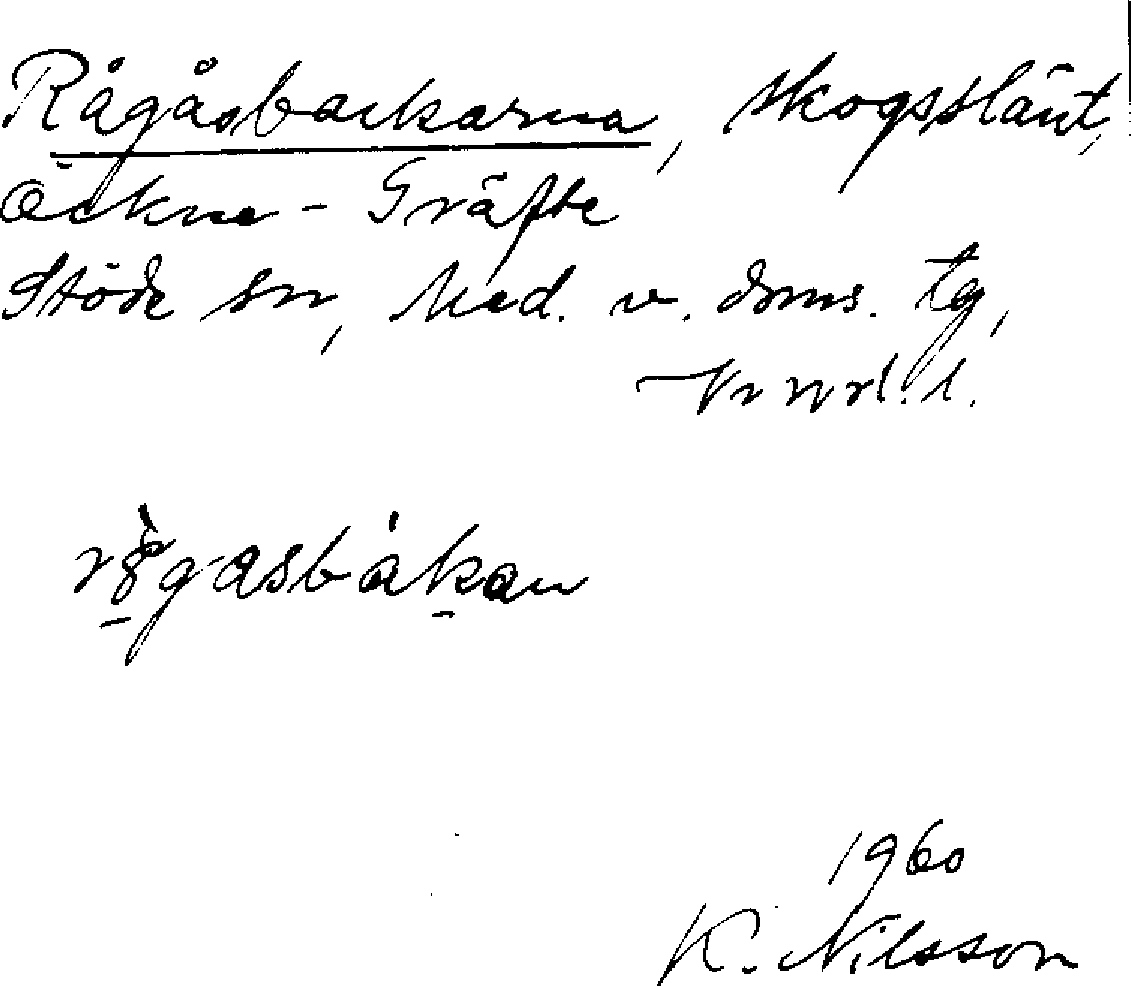 Rågåsbackarna, skogsslänt,
Öckne - Gräfte
Stöde sn, Med. v. doms. tg,
Vnrl. l.
rògasbákan
1960
K. Nilsson